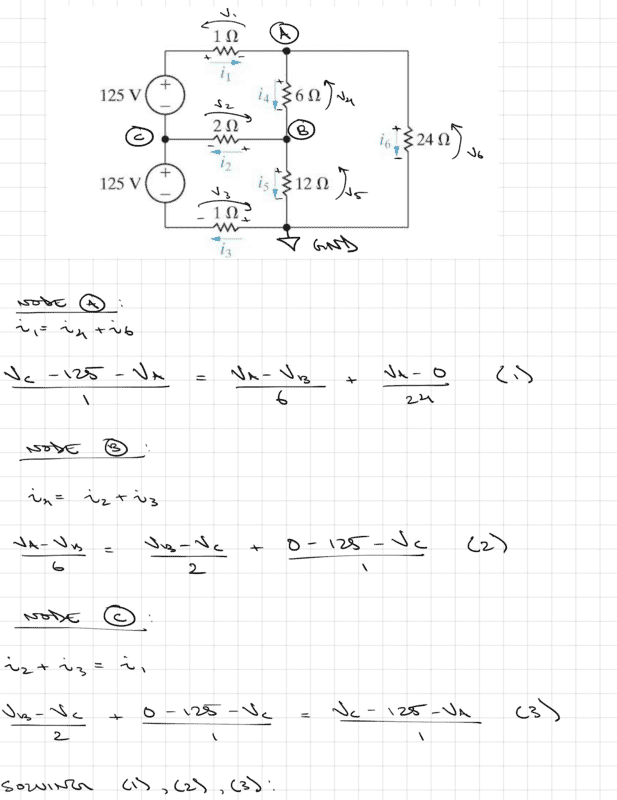 V₁
A
1 Ω
+ −
i₁
125 V
+
−
i₄
+
−
6 Ω
V₄
V₂
2 Ω
C
B
− +
i₂
i₆
+
−
24 Ω
V₆
125 V
+
−
i₅
+
−
12 Ω
V₅
V₃
− 1 Ω +
i₃
GND
NODE A :
i₁ = i₄ + i₆
(Vc − 125 − VA)/1 = (VA − VB)/6 + (VA − 0)/24 (1)
NODE B :
i₄ = i₂ + i₃
(VA − VB)/6 = (VB − Vc)/2 + (0 − 125 − Vc)/1 (2)
NODE C :
i₂ + i₃ = i₁
(VB − Vc)/2 + (0 − 125 − Vc)/1 = (Vc − 125 − VA)/1 (3)
SOLVING (1), (2), (3):